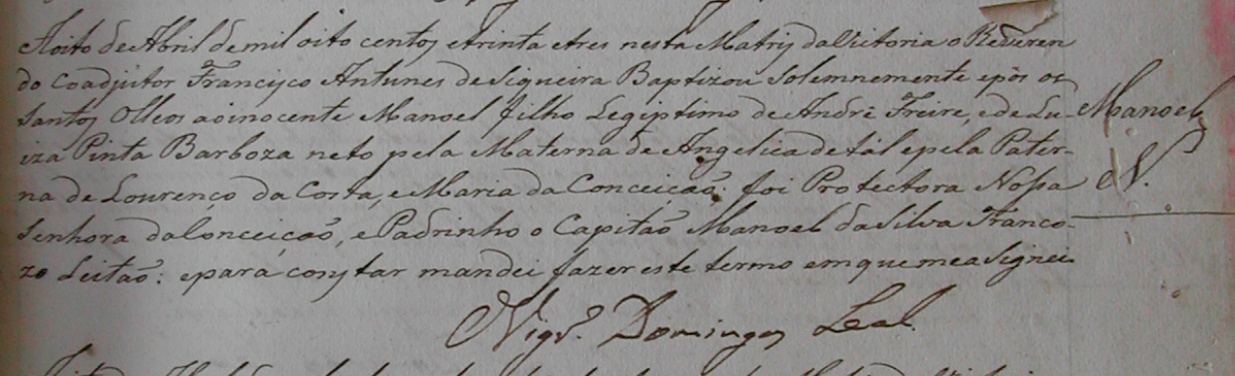 Aoito de Abril de mil oito centos etrinta etres nesta Matriz da Victoria o Reveren
do Coadjutor Francisco Antunes de Siqueira Baptizou Solemnemente epôs os
Santos Olleos ao inocente Manoel filho Legiptimo de André Freire, e de Lu-
iza Pinta Barboza neto pela Materna de Angelica de tál epela Pater-
na de Lourenço da Costa, e Maria da Conceicaõ: foi Protectora Nossa
Senhora da Conceicaõ, e Padrinho o Capitaõ Manoel da Silva Franco-
zo Leitaõ: epara constar mandei fazer este termo em que me aSignei
Vigrº. Domingos Leal.
Manoel
N.